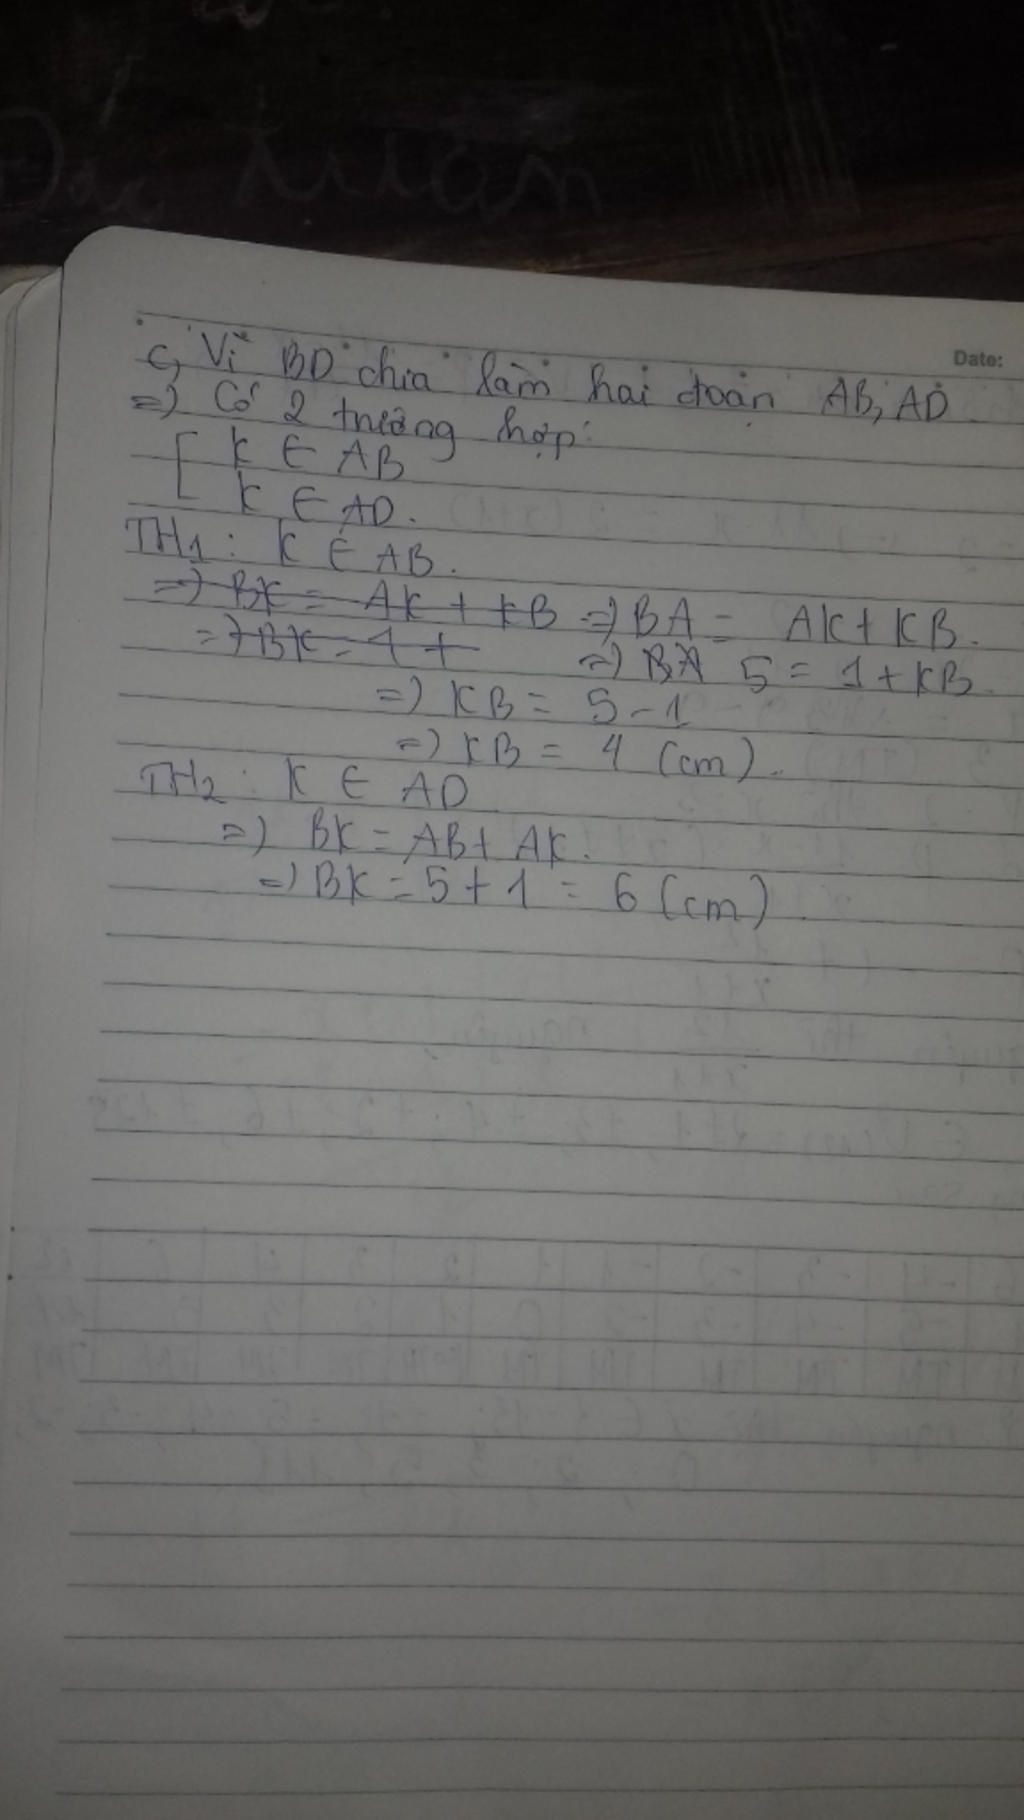 Date:
c, Vì BD chia làm hai đoạn AB, AD
=) Có 2 trường hợp:
[ K ∈ AB
K ∈ AD.
TH1: K ∈ AB.
=) BK = AK + KB =) BA = AK + KB.
=) BK = 1 + =) BA 5 = 1 + KB
=) KB = 5 - 1
=) KB = 4 (cm).
TH2: K ∈ AD
=) BK = AB + AK.
=) BK = 5 + 1 = 6 (cm)